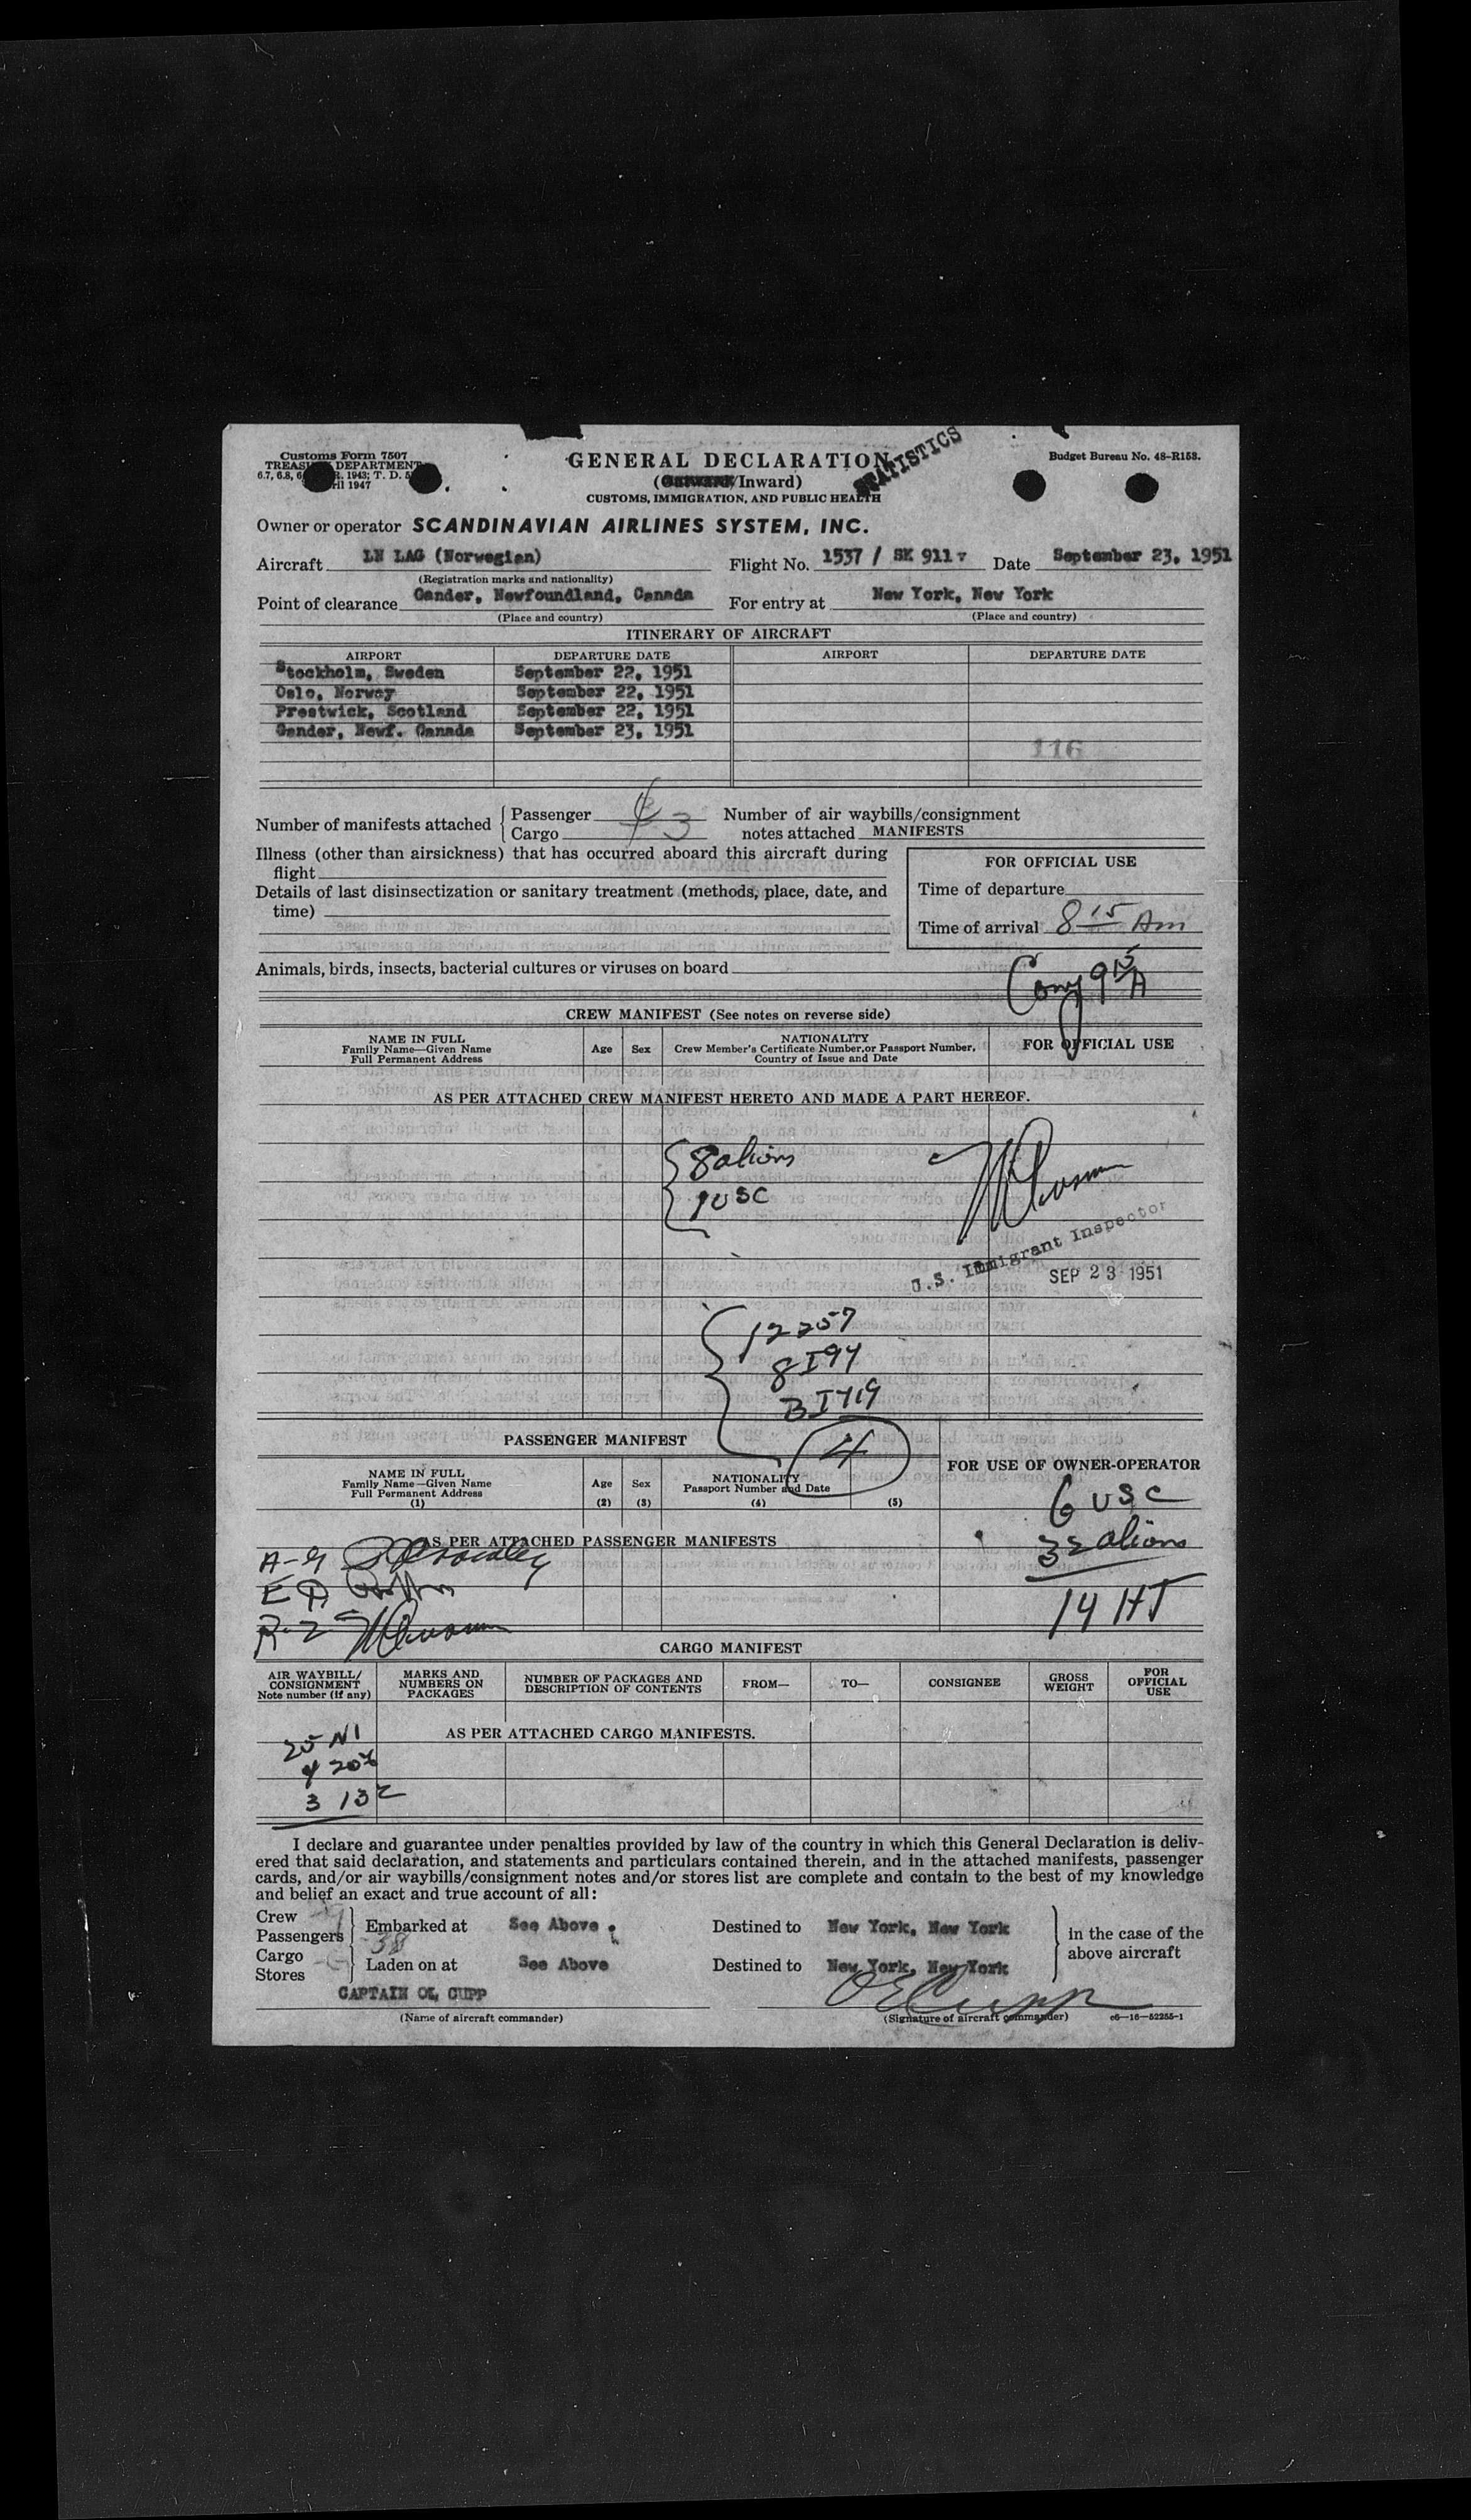 Customs Form 7507
TREASURY DEPARTMENT
1943; T. D.
1947
GENERAL DECLARATION
STATISTICS
(Inward)
CUSTOMS, IMMIGRATION, AND PUBLIC HEALTH
Budget Bureau No. 48-R158.
Owner or operator SCANDINAVIAN AIRLINES SYSTEM, INC.
Aircraft LN LAG (Norwegian) Flight No. 1537 / SK 911 Date September 23, 1951
(Registration marks and nationality)
Point of clearance Gander, Newfoundland, Canada For entry at New York, New York
(Place and country) (Place and country)
ITINERARY OF AIRCRAFT
AIRPORT DEPARTURE DATE AIRPORT DEPARTURE DATE
Stockholm, Sweden September 22, 1951
Oslo, Norway September 22, 1951
Prestwick, Scotland September 22, 1951
Gander, Newf. Canada September 23, 1951
116
Number of manifests attached { Passenger
Cargo 3
Number of air waybills/consignment
notes attached MANIFESTS
Illness (other than airsickness) that has occurred aboard this aircraft during
flight
Details of last disinsectization or sanitary treatment (methods, place, date, and
time)
FOR OFFICIAL USE
Time of departure
Time of arrival 8 15 Am
Animals, birds, insects, bacterial cultures or viruses on board
9 15 A
CREW MANIFEST (See notes on reverse side)
NAME IN FULL
Family Name—Given Name
Full Permanent Address
Age Sex
NATIONALITY
Crew Member's Certificate Number, or Passport Number,
Country of Issue and Date
FOR OFFICIAL USE
AS PER ATTACHED CREW MANIFEST HERETO AND MADE A PART HEREOF.
8 aliens
1 USC
U.S. Immigrant Inspector
SEP 23 1951
12 257
8 I94
3 I419
4
PASSENGER MANIFEST
FOR USE OF OWNER-OPERATOR
NAME IN FULL
Family Name—Given Name
Full Permanent Address
(1)
Age
(2)
Sex
(3)
NATIONALITY
Passport Number and Date
(4) (5)
6 USC
AS PER ATTACHED PASSENGER MANIFESTS
32 aliens
14 HT
CARGO MANIFEST
AIR WAYBILL/
CONSIGNMENT
Note number (if any)
MARKS AND
NUMBERS ON
PACKAGES
NUMBER OF PACKAGES AND
DESCRIPTION OF CONTENTS
FROM— TO— CONSIGNEE
GROSS
WEIGHT
FOR
OFFICIAL
USE
25 N1
AS PER ATTACHED CARGO MANIFESTS.
3 13 2
I declare and guarantee under penalties provided by law of the country in which this General Declaration is deliv-
ered that said declaration, and statements and particulars contained therein, and in the attached manifests, passenger
cards, and/or air waybills/consignment notes and/or stores list are complete and contain to the best of my knowledge
and belief an exact and true account of all:
Crew
Passengers 38
Embarked at See Above Destined to New York, New York
Cargo
Stores
Laden on at See Above Destined to New York, New York
in the case of the
above aircraft
CAPTAIN OE, CUPP
OECupp
(Name of aircraft commander) (Signature of aircraft commander) c6—16—52255-1